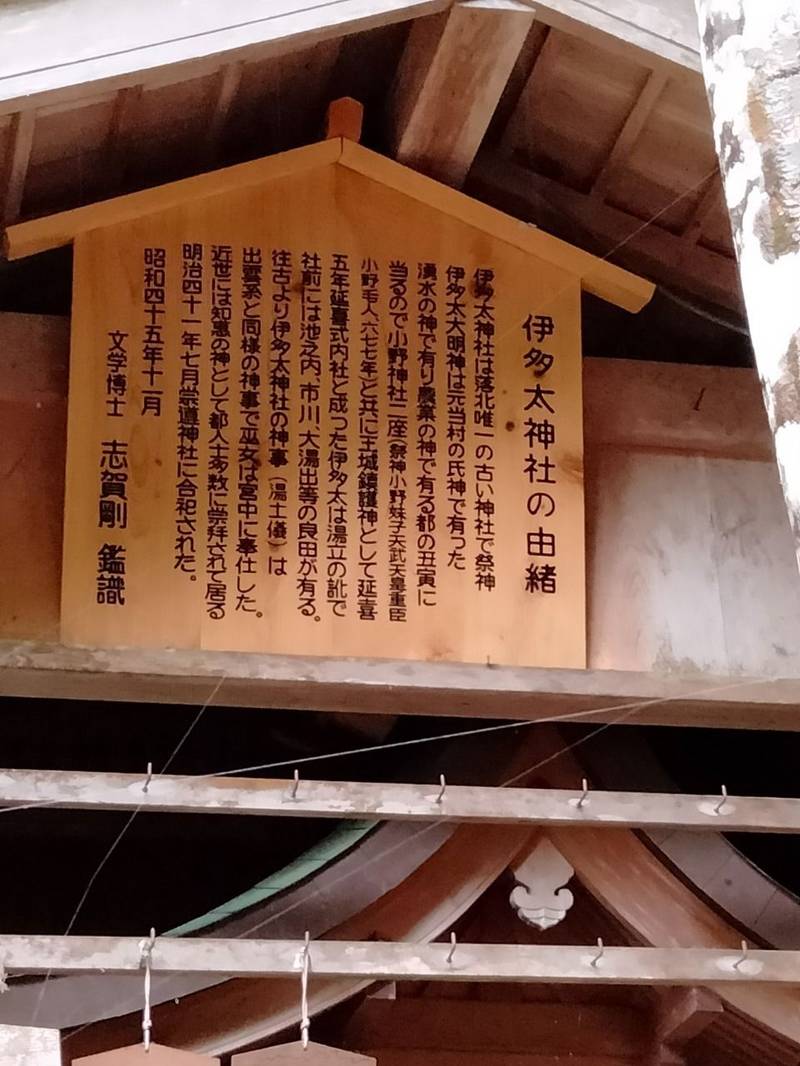 伊多太神社の由緒
伊多太神社は落北唯一の古い神社で祭神
伊多太大明神は元当村の氏神で有った
湧水の神で有り農業の神で有る都の丑寅に
当るので小野神社二座(祭神小野妹子天武天皇重臣
小野毛人六七七年)と共に王城鎮護神として延喜
五年延喜式内社と成った伊多太は湯立の訛で
社前には池之内、市川、大湯出等の良田が有る。
往古より伊多太神社の神事(湯土儀)は
出雲系と同様の神事で巫女は宮中に奉仕した。
近世には知恵の神として都人士多数に崇拜されて居る
明治四十一年七月崇道神社に合祀された。
昭和四十五年十一月
文学博士 志賀剛 鑑識